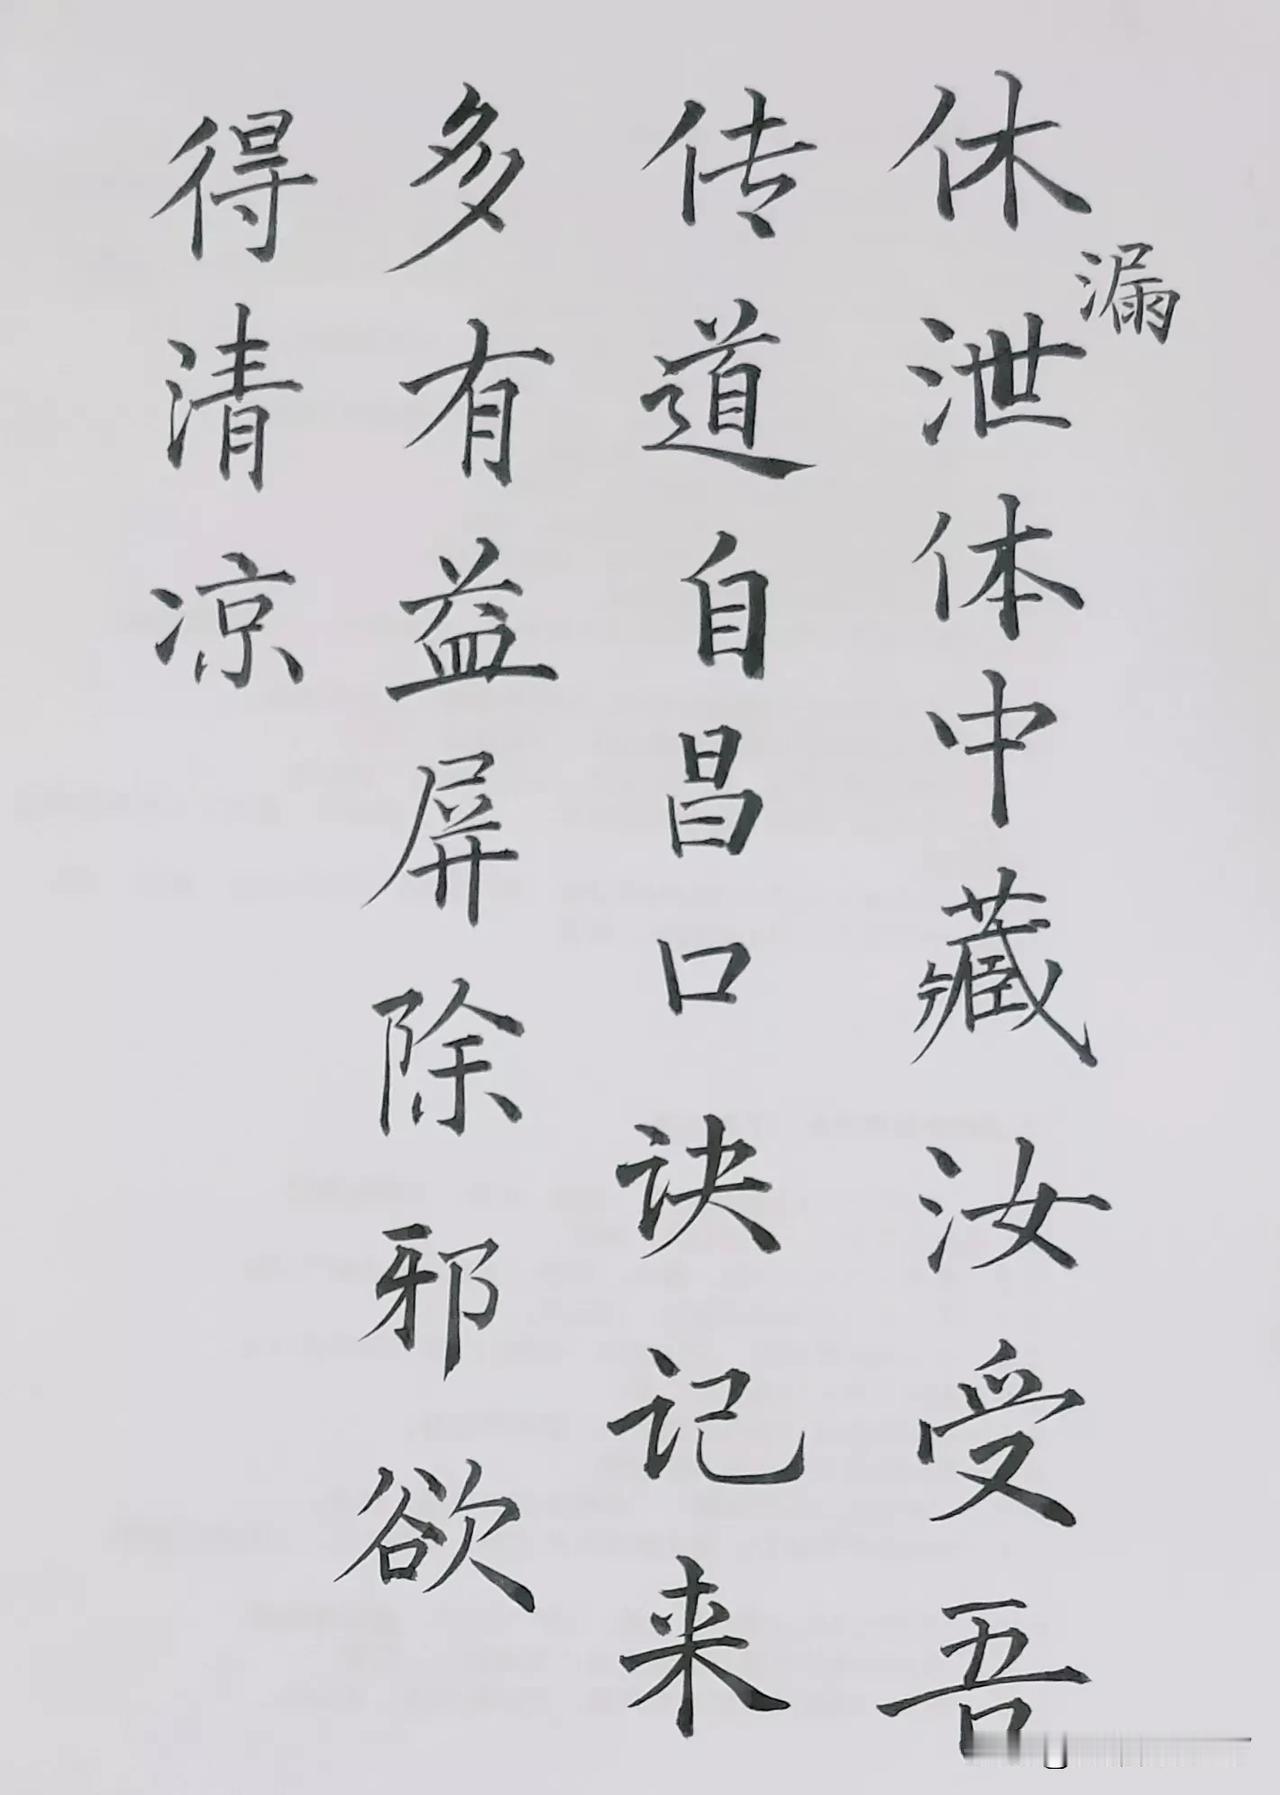 休漏泄体中藏汝受吾
传道自昌口诀记来
多有益屏除邪欲
得清凉